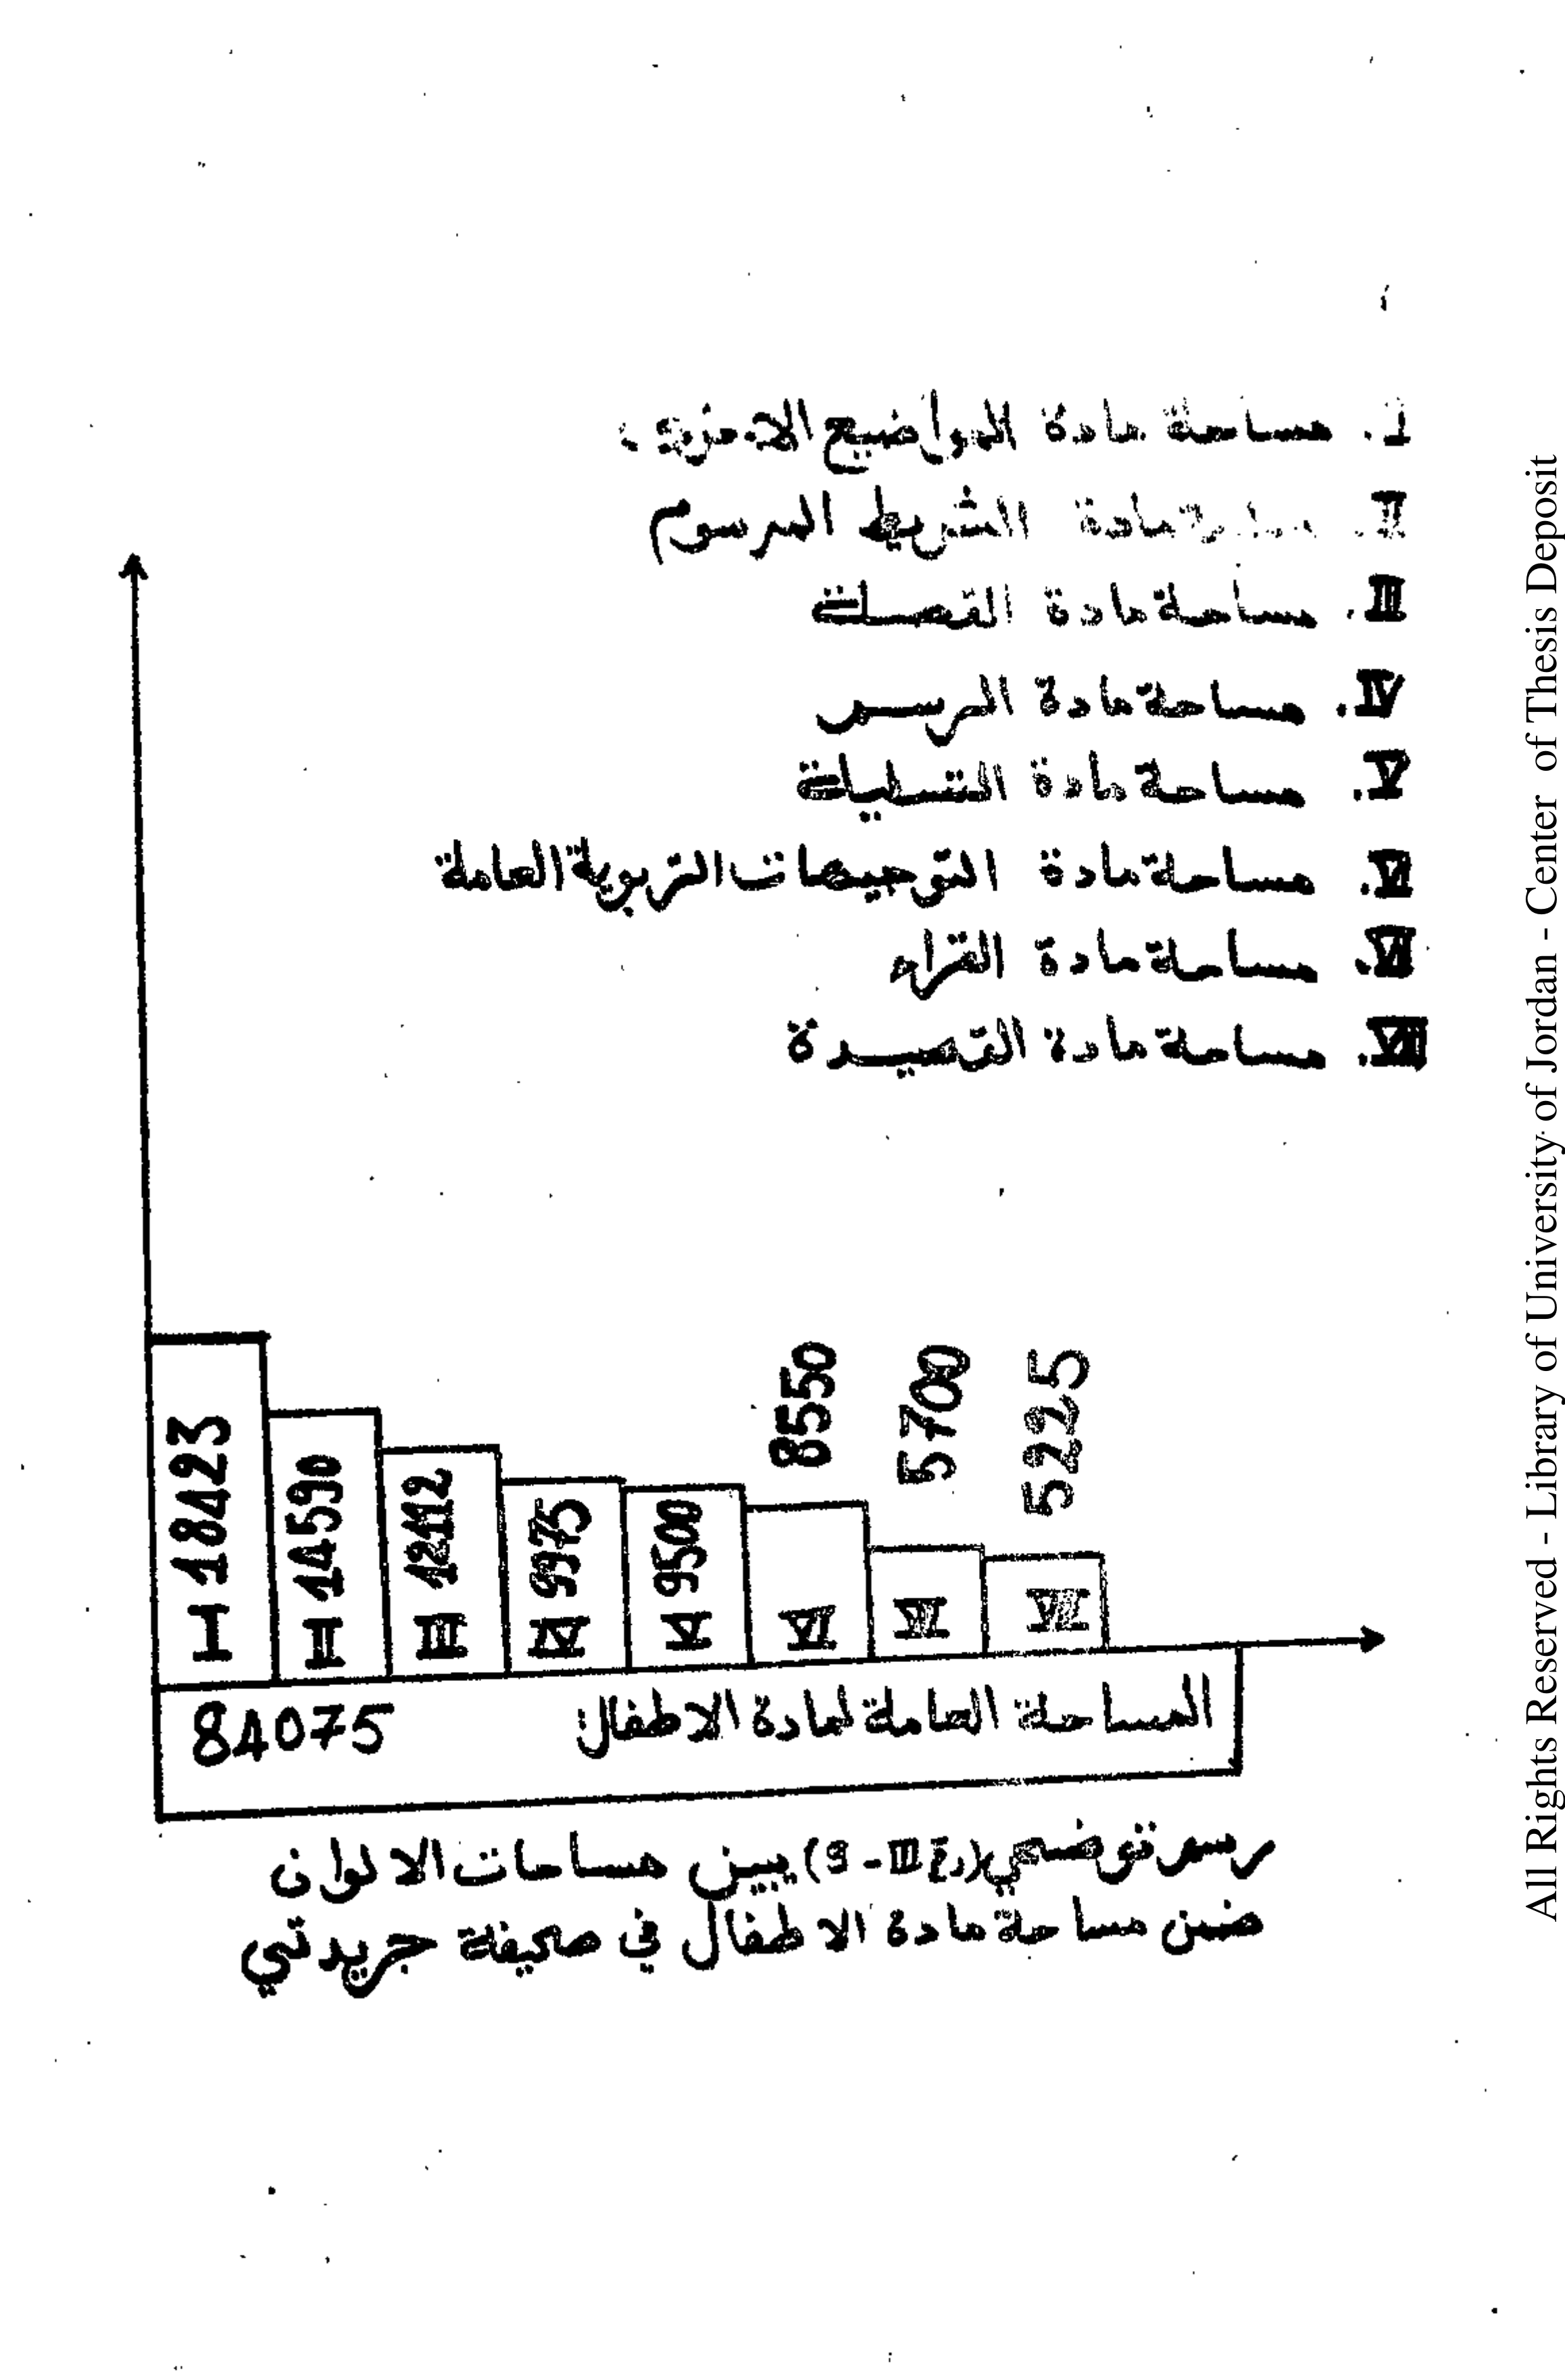 I. مساحة مادة المواضيع الاخرى.
II. مساحة مادة الشريط المرسوم
III. مساحة مادة القصة
IV. مساحة مادة الرسم
V. مساحة مادة التسلية
VI. مساحة مادة التوجيهات التربوية العامة
VII. مساحة مادة القراء
VIII. مساحة مادة القصيدة
I 18423
II 14590
III 12112
IV 9975
V 9500
VI 8550
VII 5700
VIII 5225
المساحة العامة لمادة الاطفال 84075
رسم توضيحي (رقم III - 9) يبين مساحات الالوان
ضمن مساحة مادة الاطفال في صحيفة جريدتي
All Rights Reserved - Library of University of Jordan - Center of Thesis Deposit